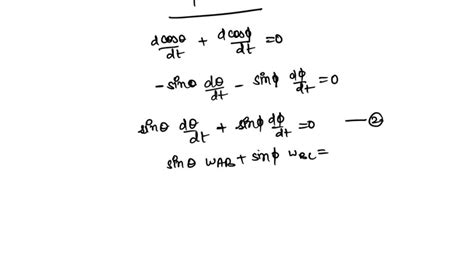 dcosθ/dt + dcosϕ/dt =0
-sinθ dθ/dt - sinϕ dϕ/dt =0
sinθ dθ/dt + sinϕ dϕ/dt =0 — ②
sinθ ωAB + sinϕ ωBC =